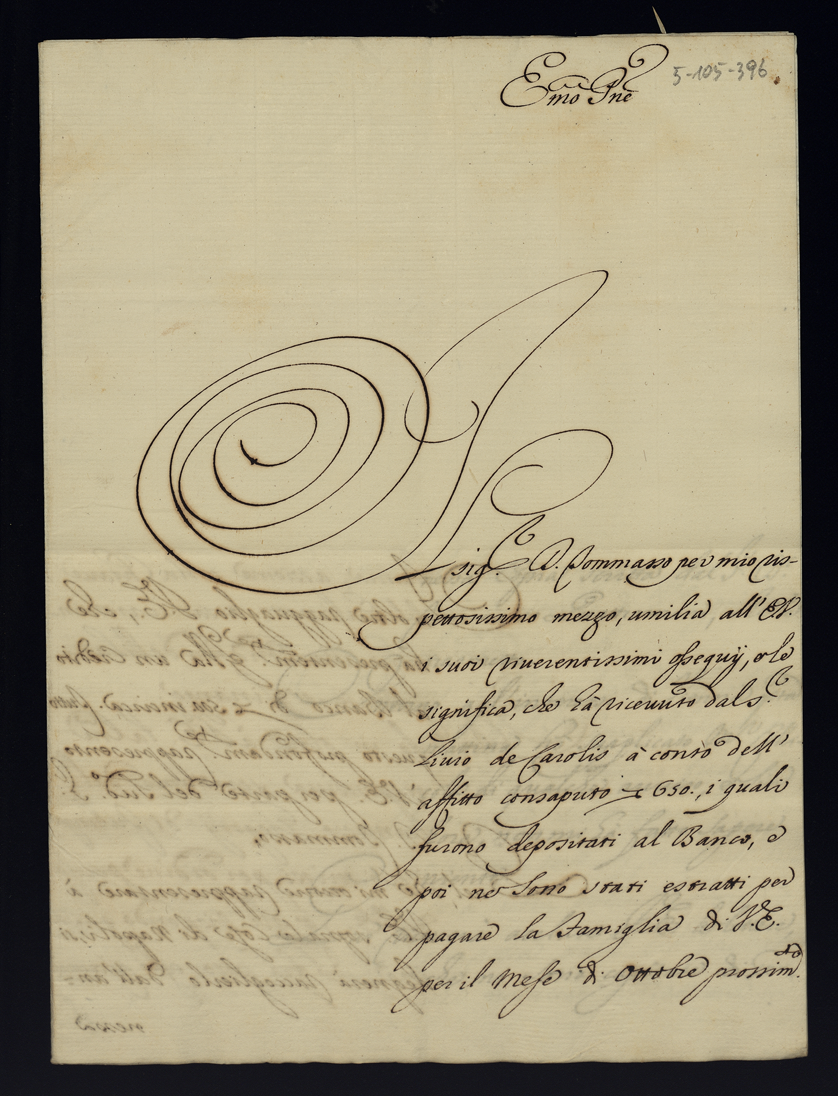 Emo Pne
5-105-396
Il sig.r D. Tommasso per mio ris-
pettosissimo mezzo, umilia all' E.V.
i suoi riverentissimi ossequij, e le
significa, che hà ricevuto dal s.r
Livio de Carolis à conto dell'
affitto consaputo 650., i quali
furono depositati al Banco, e
poi ne sono stati estratti per
pagare la Famiglia di V.E.
per il Mese di Ottobre prossim